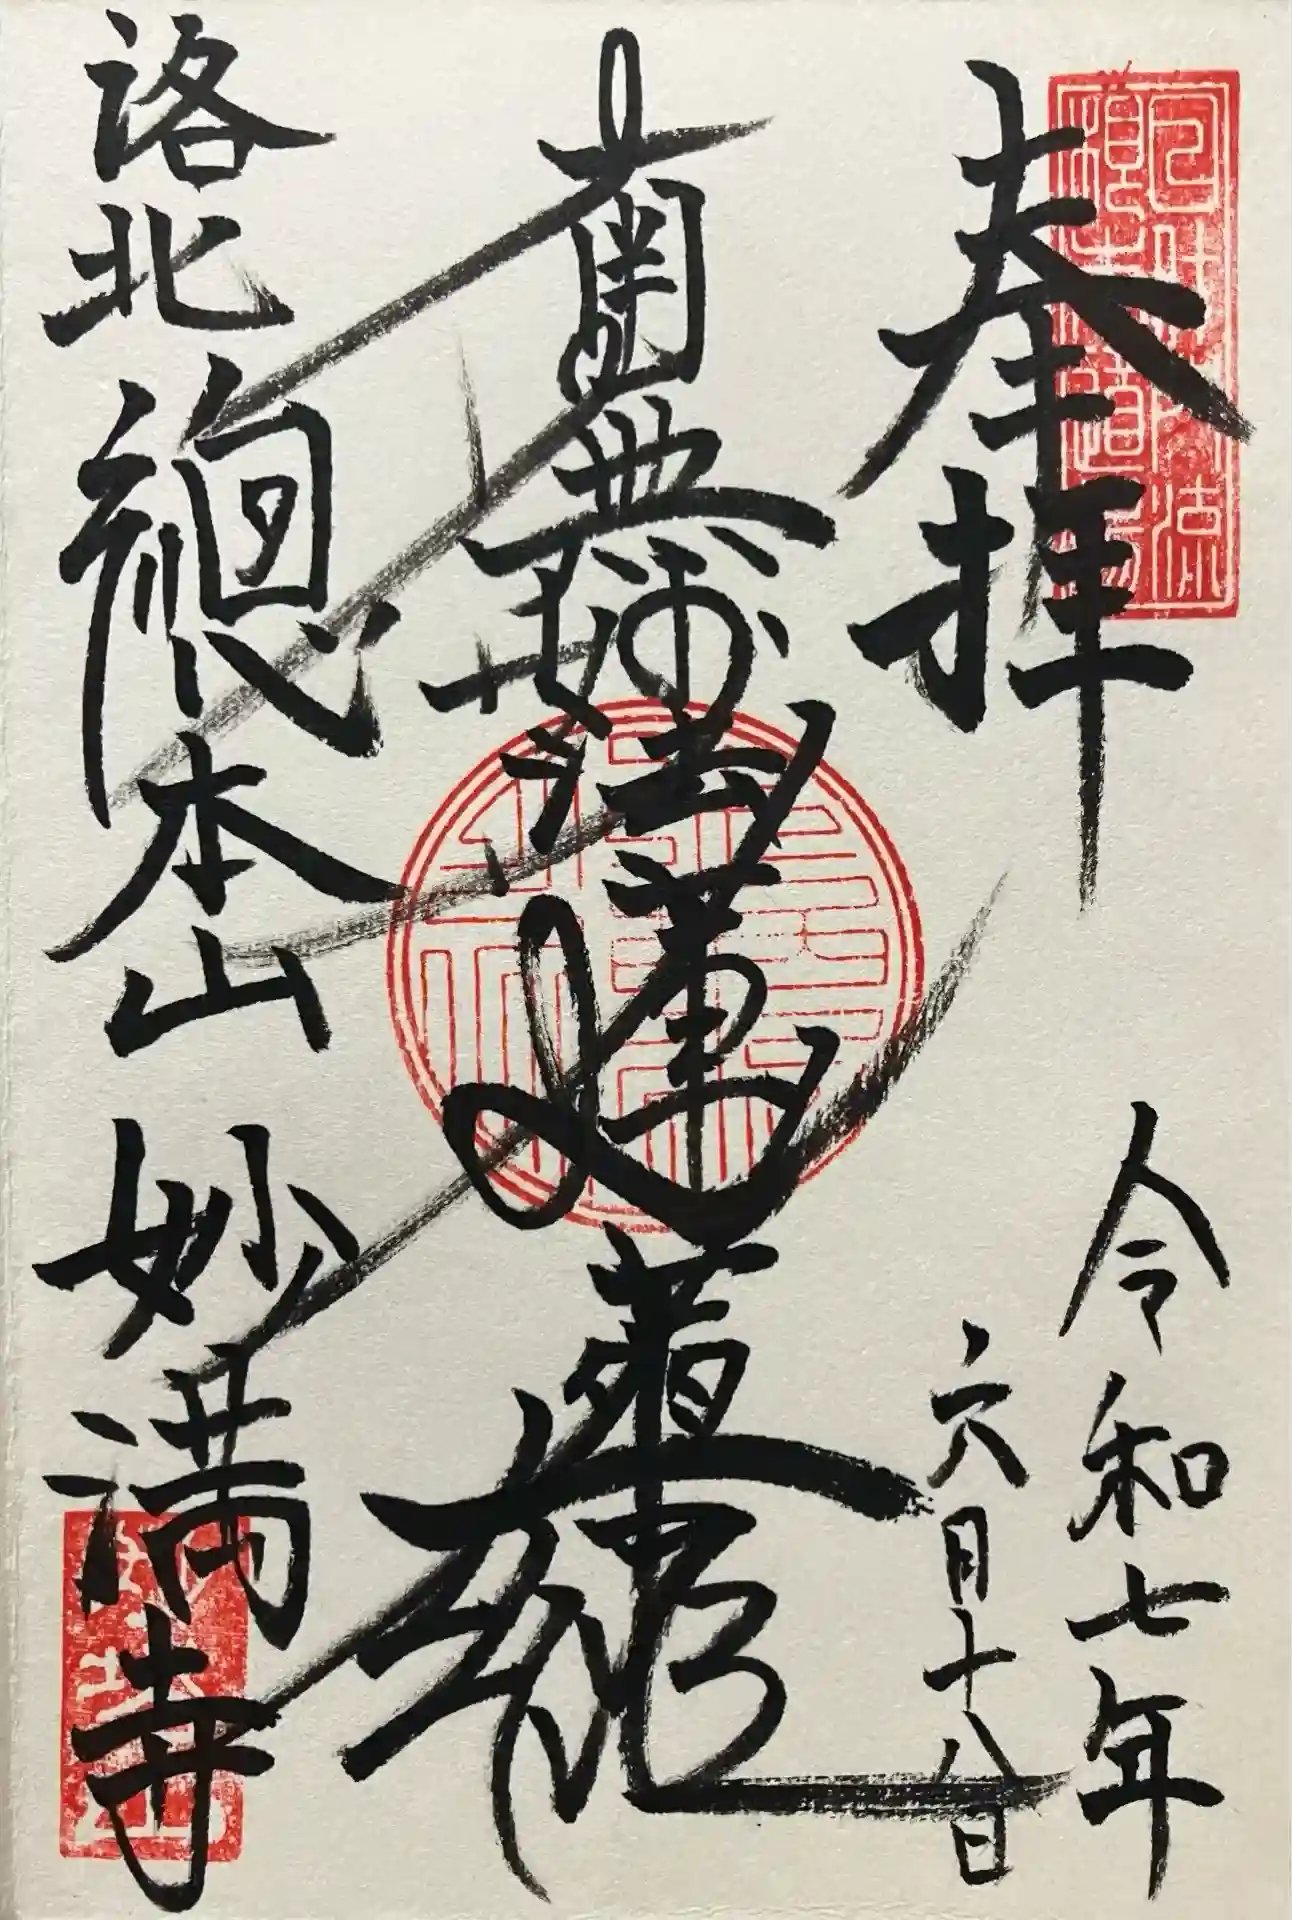 奉拝
令和七年
六月十八日
南無妙法蓮華経
洛北總本山妙満寺